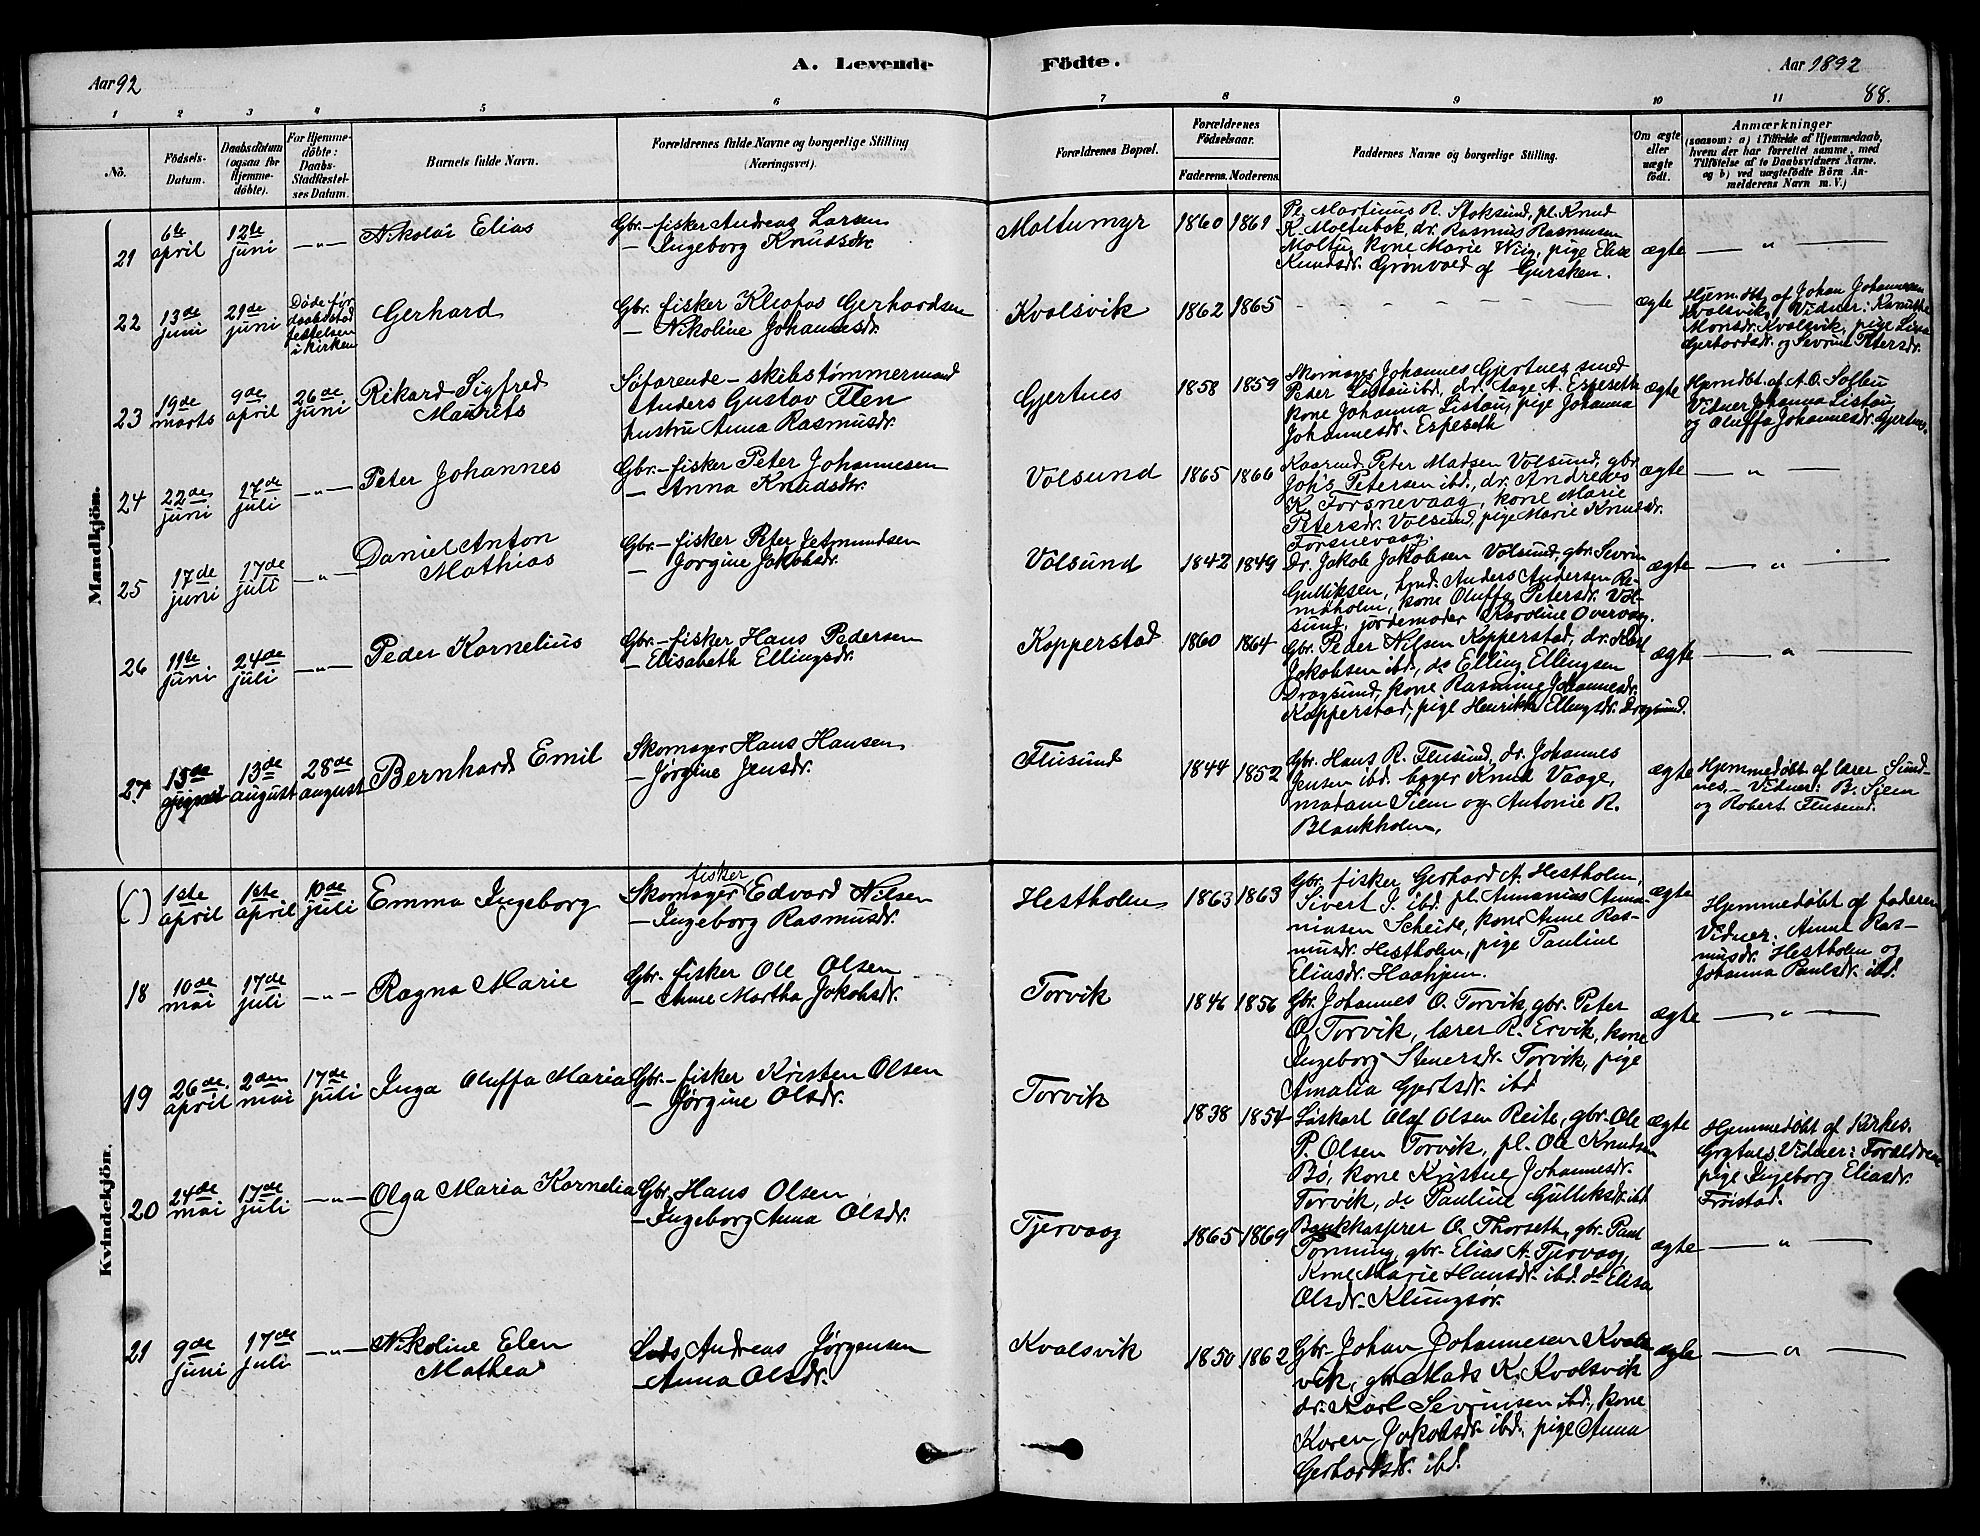 Aar 92
A. Levende
Födte.
Aar 1892
88.
1 2 3 4 5 6 7 8 9 10 11
No.
Födsels-
Datum.
Daabsdatum
(ogsaa for
Hjemme-
döbte).
For Hjemme-
döbte:
Daabs-
Stadfæstel-
ses Datum.
Barnets fulde Navn.
Forældrenes fulde Navne og borgerlige Stilling
(Næringsvei).
Forældrenes Bopæl.
Forældrenes
Födselsaar.
Faderens. Moderens.
Faddernes Navne og borgerlige Stilling.
Om ægte
eller
uægte
født.
Anmærkninger
(saasom: a) i Tilfælde af Hjemmedaab,
hvem der har forrettet samme, med
Tilföielse af to Daabsvidners Navne.
og b) ved uægtefödte Börn An-
melderens Navn m. V.)
Mandkjön.
21
6te
april
12te
juni
—„—
Nikolai Elias
Gbr.-fisker Andreas Larsen
— Ingeborg Knudsdr.
Moltumyr
1860 1861
Pl. Martinus R. Stoksund, pl. Knud
K. Moltubak, dr. Rasmus Rasmusen
Moltu, kone Marie Wiig, pige Elise
Knudsdr. Grönvold af Gursken.
ægte
— „ —
22
13de
juni
21de
juni
Døde før
daabsstad
festelsen
i kirken
Gerhard
Gbr. fisker Kleofas Gerhardsen
— Nikoline Johannesdr.
Kvalsvik
1862 1865
- - - - - - - -
ægte
Hjem.döbt af Johan Johannesen
Kvalsvik, Vidner:
Monsdr. Kvalsvik, pige Lina
Gerhardsdr. og Sevrine Petersdr.
23
19de
marts
9de
april
26de
juni
Rikard Sigfred
Maurits
Søfarende - skibstømmermand
Anders Gustav Flen
hustru Anna Rasmusdr.
Gjertnes
1858 1859
Skomager Johannes Gjertnes, smed
Peder Listau ibd., dr. Aage A. Espeseth
kone Johanna Listau, pige Johanna
Johannesdr. Espeseth
ægte
Hjemdöbt af A. O. Solbu
Vidner Johanna Listau
og Oluffa Johannesdr. Gjertnes.
24
22de
juni
17de
juli
—„—
Peter Johannes
Gbr.-fisker Peter Johannesen
— Anna Knudsdr.
Volsund
1865 1866
Kaarmd. Peter Madsen Volsund, gbr.
Joh's Petersen ibd., dr. Andreas
K. Forsnevaag, kone Marie
Petersdr. Volsund, pige Marie Knudsdr.
Forsnevaag.
ægte
— „ —
25
17de
juni
17de
juli
—„—
Daniel Anton
Mathias
Gbr.-fisker Peter Jetmundsen
— Jørgine Jakobsdr.
Volsund
1842 1849
Dr. Jakob Jakobsen Volsund, gbr. Sevrin
Gulliksen, hmd. Anders Andersen Re-
möholm, kone Oluffa Petersdr. Vol-
sund, jordemoder Karoline Overvaag.
ægte
— „ —
26
11te
juni
24de
juli
—„—
Peder Kornelius
Gbr.-fisker Hans Pedersen
— Elisabeth Ellingsdr.
Kopperstad
1860 1864
Gbr. Peder Nilsen Kopperstad, dr. Karl
Jakobsen ibd., do Elling Ellingsen
Dragsund, kone Rasmine Johannesdr.
Kopperstad, pige Henrikke Ellingsdr. Dragsund.
ægte
— „ —
27
15de
13de
august
28de
august
Bernhard Emil
Skomager Hans Hansen
— Jørgine Jensdr.
Flusund
1844 1852
Gbr. Hans R. Flusund, dr. Johannes
Jensen ibd. bager Knud Vaage,
madam Siem og Antonie R.
Blankholm.
ægte
Hjemmedöbt af lærer Sund-
nes.- Vidner: B. Siem
og Robert Flusund.
Kvindekjön.
( )
1ste
april
1ste
april
10de
juli
Emma Ingeborg
Skomager fisker Edvard Nilsen
— Ingeborg Rasmusdr.
Hestholm
1863 1863
Gbr. fisker Gerhard A. Hestholm,
Sivert J. ibd. pl. Annanias Anna-
niasen Scheide, kone Anne Ras-
musdr. Hestholm, pige Pauline
Eliasdr. Haahjem.
ægte
Hjemmedöbt af faderen
Vidner: Anne Ras-
musdr. Hestholm og
Johanna Paulsdr. ibd.
18
10de
mai
17de
juli
—„—
Ragna Marie
Gbr. fisker Ole Olsen
— Anne Martha Jakobsdr.
Torvik
1846 1856
Gbr. Johannes O. Torvik, gbr. Peter
O. Torvik, lærer R. Ervik, kone
Ingeborg Steuersdr. Torvik, pige
Amalia Gjertsdr. ibd
ægte
— „ —
19
26de
april
2den
mai
17de
juli
Inga Oluffa Maria
Gbr.- fisker Kristen Olsen
— Jørgine Olsdr.
Torvik
1838 1854
Løskarl Olaf Olsen Reite, gbr. Ole
P. Olsen Torvik, pl. Ole Knudsen
Bø, kone Kristine Johannesdr.
Torvik, do Pauline Gulliksdr. ibd.
ægte
Hjemmedöbt af Kirkes.
Grytnes. Vidner: Forældrene
pige Ingeborg Eliasdr.
Frøistad.
20
24de
mai
17de
juli
—„—
Olga Maria Kornelia
Gbr. Hans Olsen
— Ingeborg Anna Olsdr.
Tjervaag
1865 1869
Bankkasjrer O. Thorseth, gbr. Paul
Torning, gbr. Elias A. Tjervaag,
Kone Marie Hansdr. ibd. do Elisa
Olsdr. Klungsør.
ægte
— „ —
21
9de
juni
17de
juli
—„—
Nikoline Elen
Mathea
Lods Andreas Jørgensen
— Anna Olsdr.
Kvalsvik
1850 1862
Gbr. Johan Johannesen Kvals-
vik, gbr. Mads K. Kvalsvik
dr. Karl Sevrinsen ibd., kone
Karen Jakobsdr. ibd., pige Anna
Gerhardsdr. ibd.
ægte
— „ —